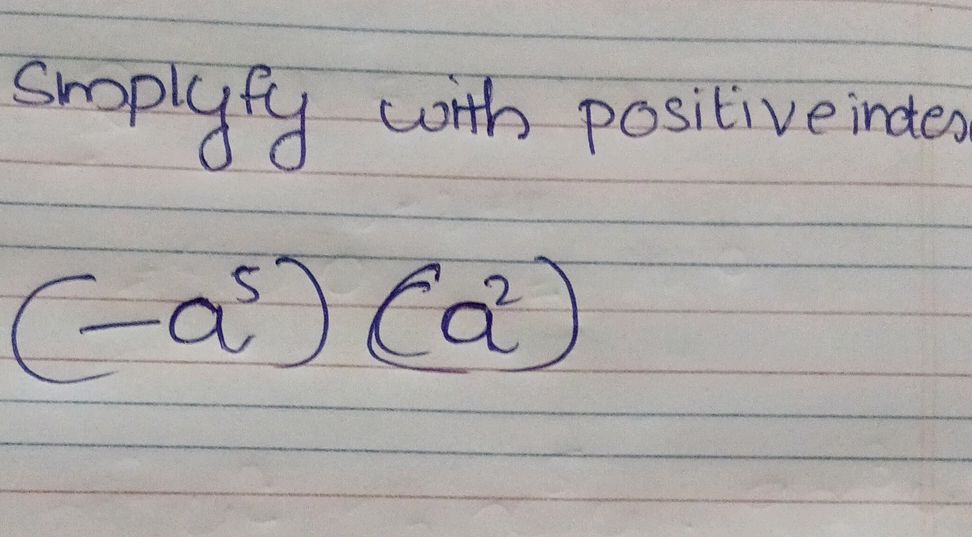 Simplyfy with positive index
(-a⁵) (a²)